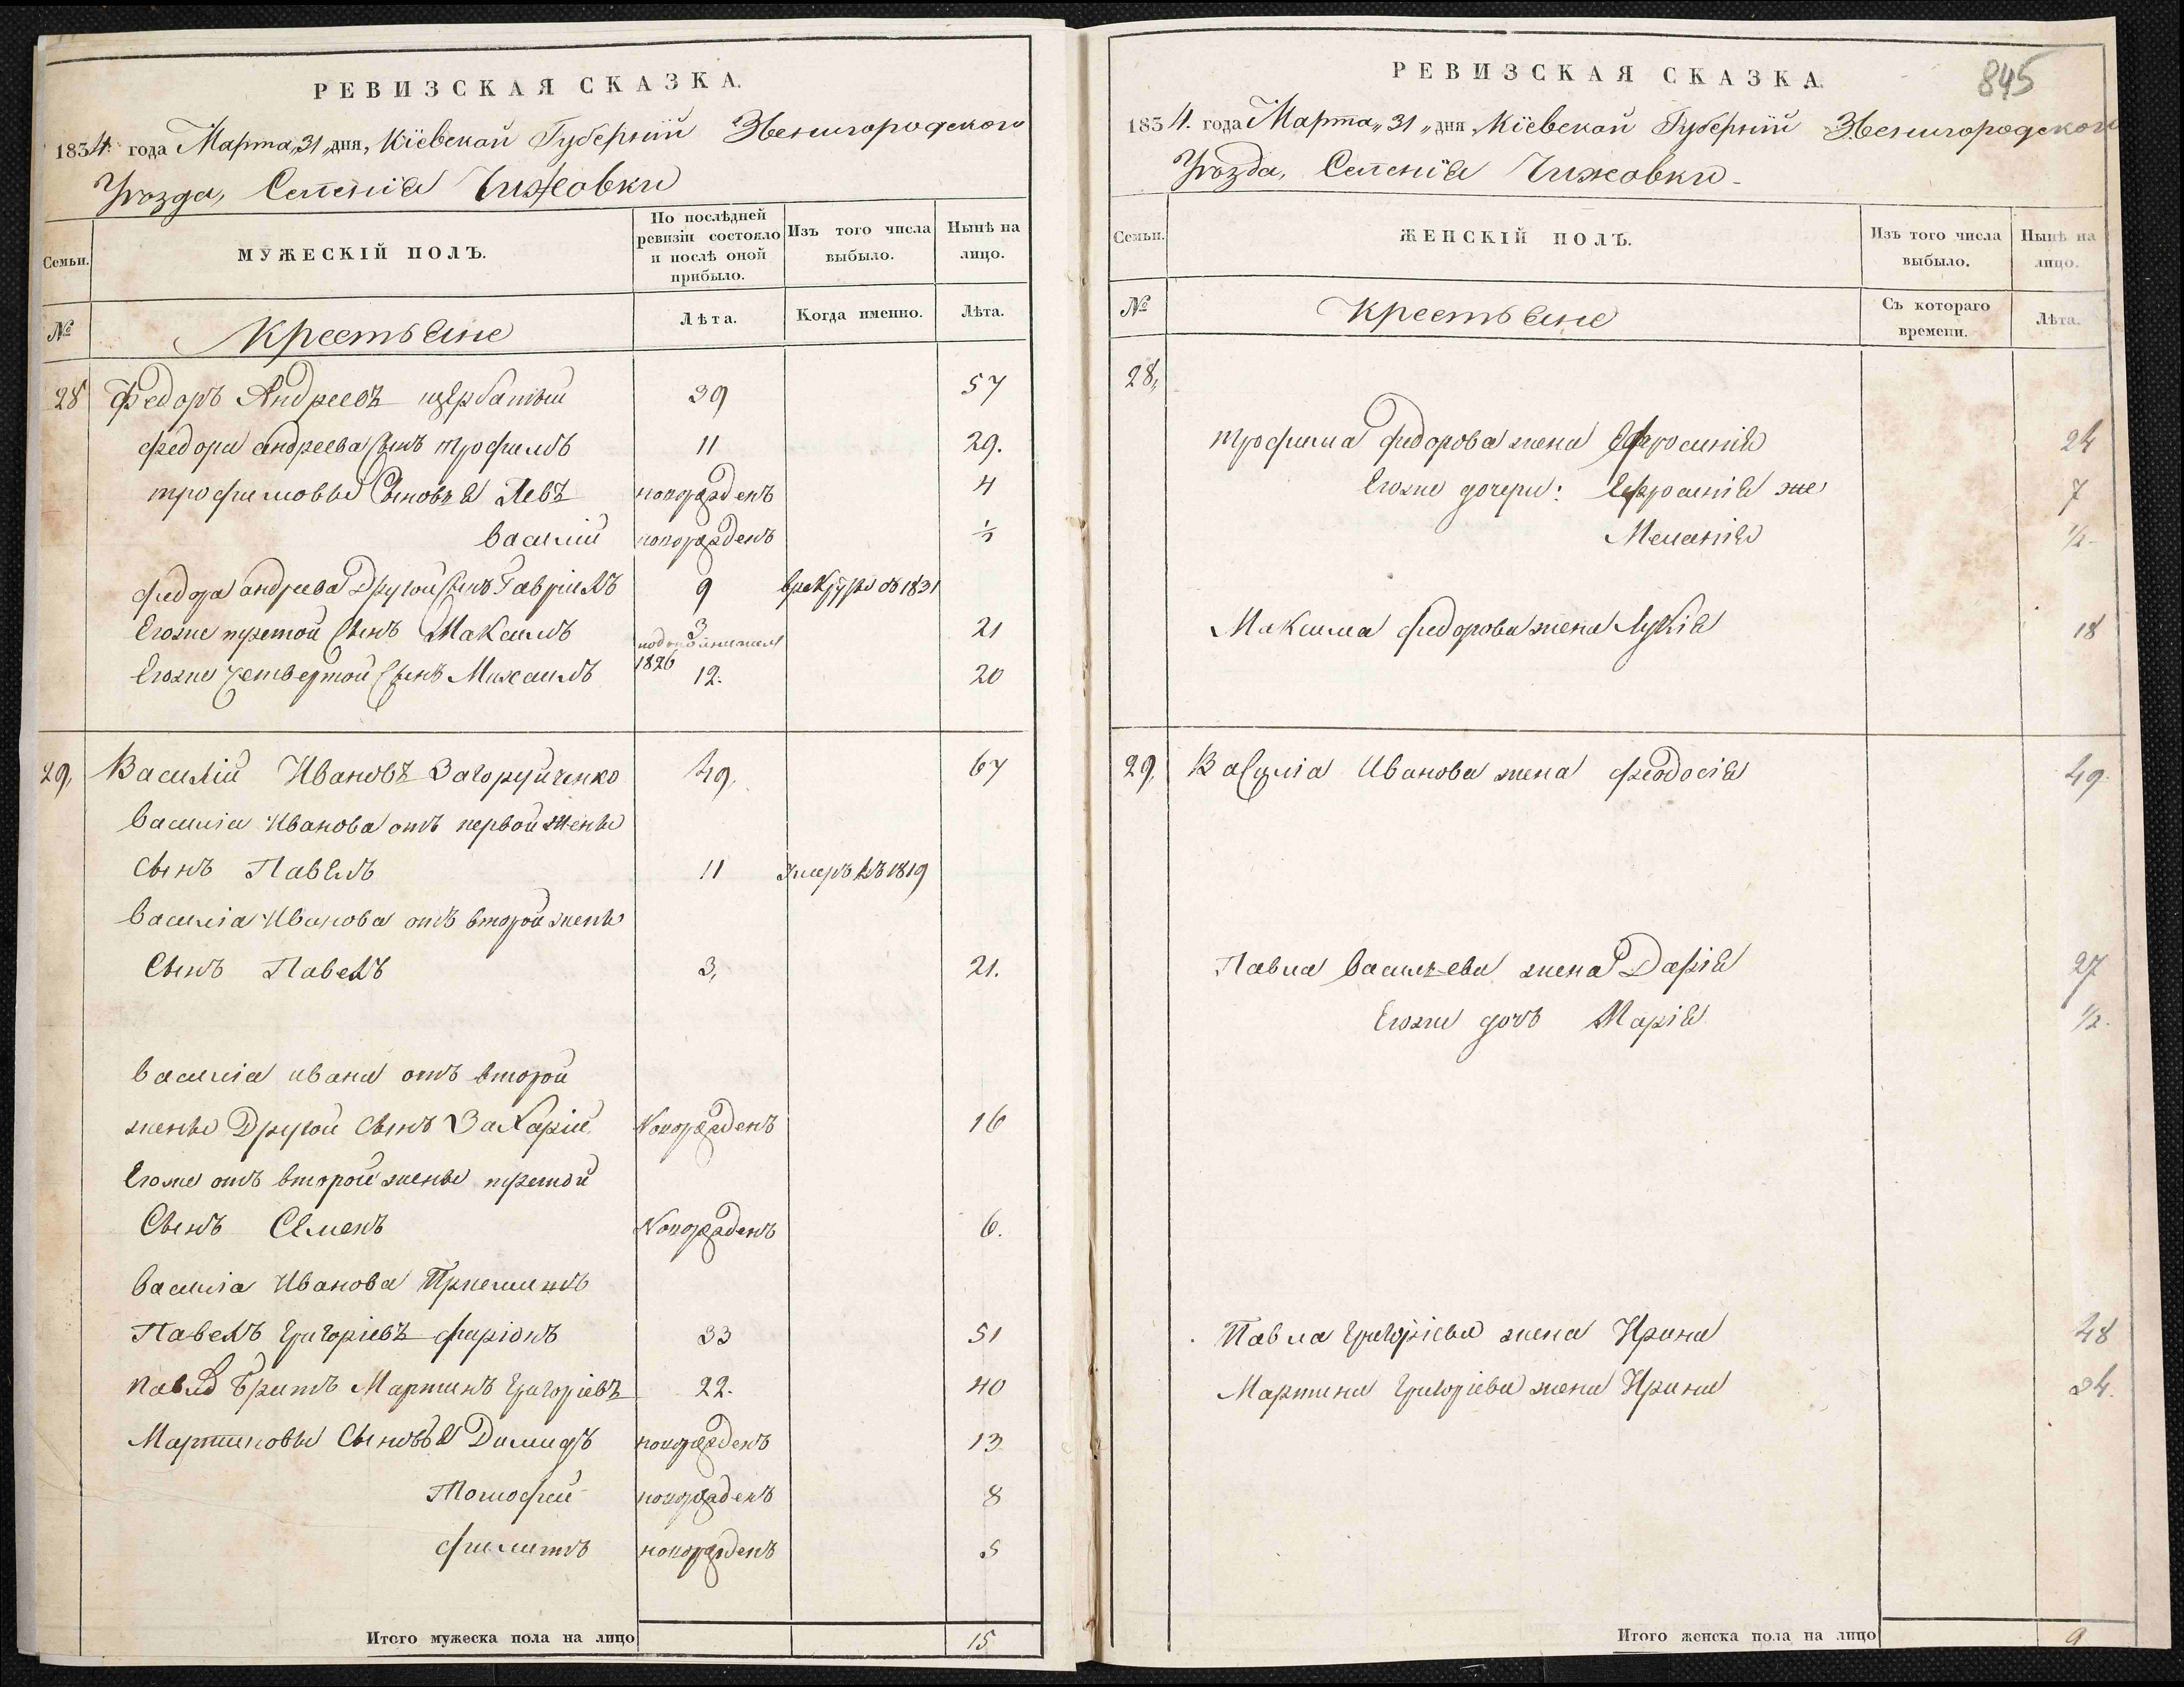 РЕВИЗСКАЯ СКАЗКА.
1834. года Марта „31„ дня, Кіевской Губерніи Звенигородского
Уѣзда, Селенія Чижовки
Семьи.
МУЖЕСКІЙ ПОЛЪ.
По послѣдней ревизіи состояло и послѣ оной прибыло.
Изъ того числа выбыло.
Нынѣ на лицо.
№
Крестьяне
Лѣта.
Когда именно.
Лѣта.
28 Федоръ Андреевъ щербатый 39 57
Федора андреева сынъ трофимъ 11 29.
трофимовы сыновья Левъ новорожденъ 4
василий новорожденъ
Федора андреева Другой сынъ Гавріилъ 9 врекруты въ 1831
Егоже третой сынъ Максимъ 3 21
1826
Егоже четвертой сынъ Михаилъ 12. 20
29, Василій Ивановъ Загоруйченко 49, 67
василіа Иванова отъ первой жены
сынъ Павелъ 11 Умеръ въ 1819
василіа Иванова отъ второй жены
Сынъ Павелъ 3, 21.
василіа ивана отъ второй
жены Другой сынъ Захарій Новорожденъ 16
Егоже отъ второй жены третой
Сынъ Семенъ Новорожденъ 6.
василіа Иванова Приемышъ
Павелъ Григоріевъ фаріонъ 33 51
Павла Братъ Мартинъ Григоріевъ 22. 40
Мартиновы Сыновья Демидъ новорожденъ 13
Тимофей новорожденъ 8
филипъ новорожденъ 5
Итого мужеска пола на лицо 15
845
РЕВИЗСКАЯ СКАЗКА.
1834. года Марта „31„ дня, Кіевской Губерніи Звенигородского
Уѣзда, Селенія Чижовки
Семьи.
ЖЕНСКІЙ ПОЛЪ.
Изъ того числа выбыло.
Нынѣ на лицо.
№
Крестьяне
Съ котораго времени.
Лѣта.
28,
трофима федорова жена Ефросинія 24
Егоже дочери: Ефросинія же 7
Меланія 1/2
Максима федорова жена Лукія 18
29, Василіа Иванова жена феодосія 49.
Павла васильева жена Дарія 27
Егоже дочь Марія 1/2.
Павла Григоріева жена Ирина 48
Мартина Григоріева жена Ирина 34.
Итого женска пола на лицо 9